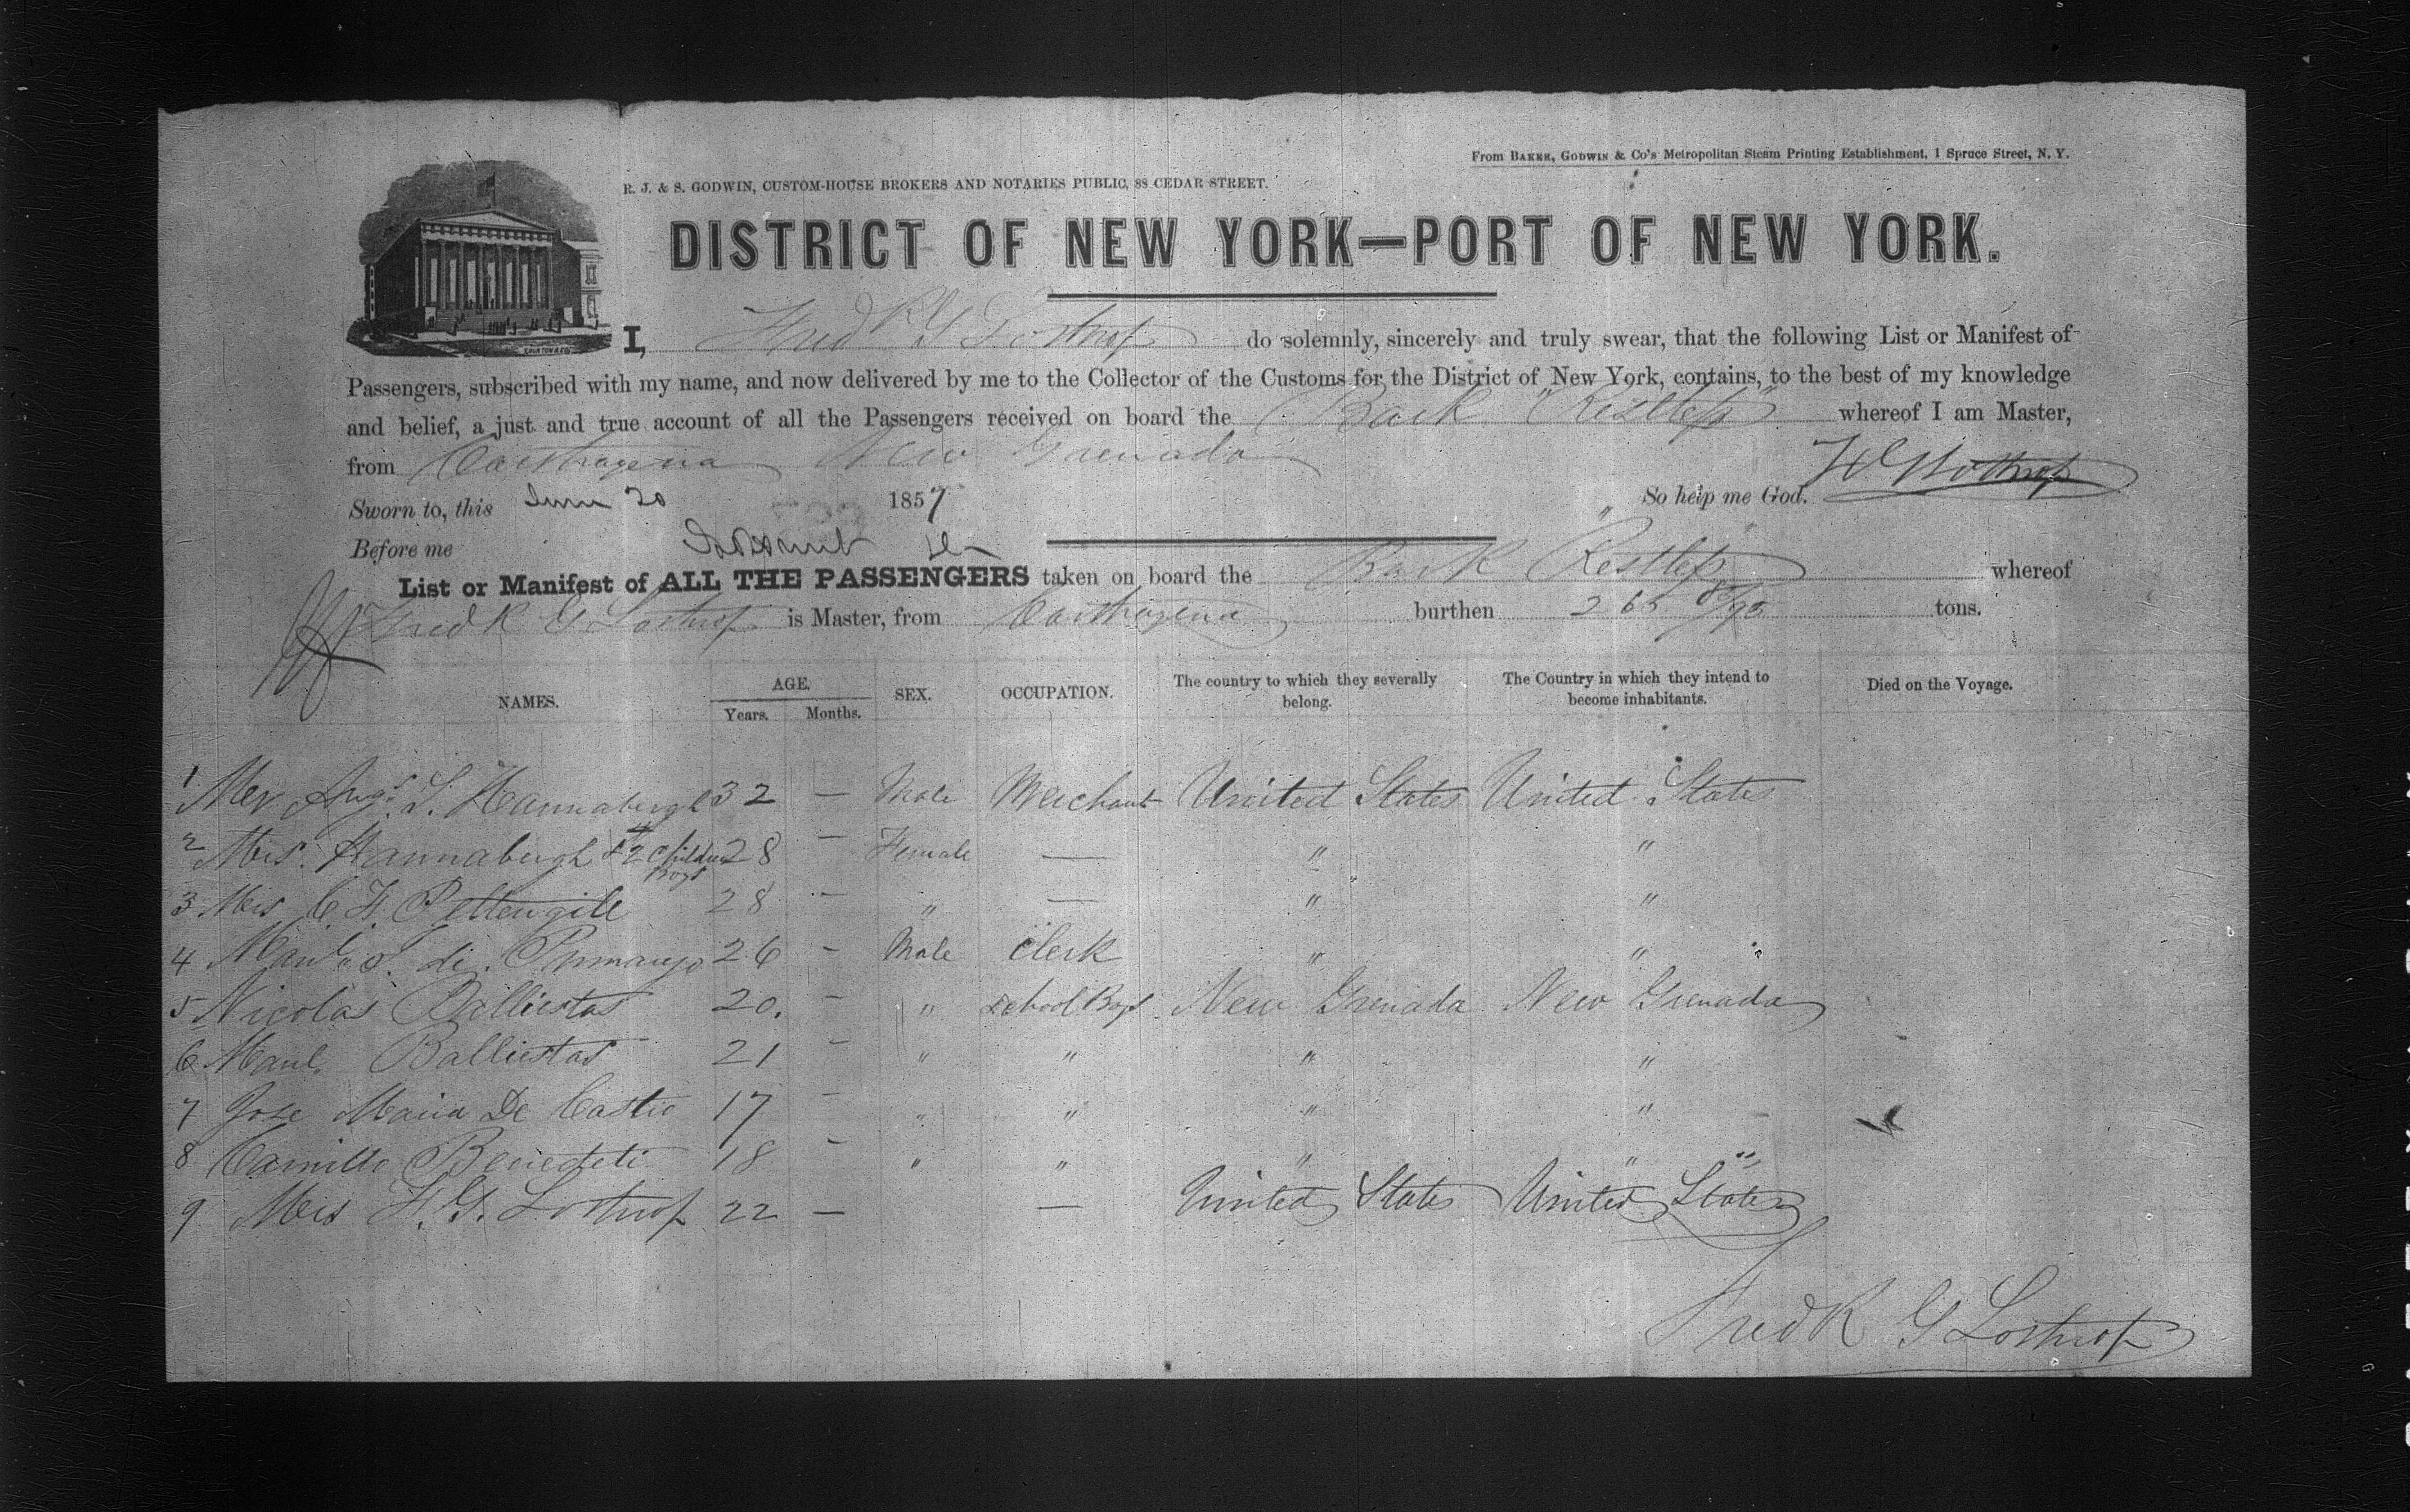 From BAKER, GODWIN & Co's Metropolitan Steam Printing Establishment, 1 Spruce Street, N. Y.
R. J. & S. GODWIN, CUSTOM-HOUSE BROKERS AND NOTARIES PUBLIC, 88 CEDAR STREET.
DISTRICT OF NEW YORK—PORT OF NEW YORK.
I, Fredk G Lothrop do solemnly, sincerely and truly swear, that the following List or Manifest of
Passengers, subscribed with my name, and now delivered by me to the Collector of the Customs for the District of New York, contains, to the best of my knowledge
and belief, a just and true account of all the Passengers received on board the Bark "Restless" whereof I am Master,
from Carthagena New Grenada
Sworn to, this June 20 1857 So help me God. Lothrop
Before me
List or Manifest of ALL THE PASSENGERS taken on board the Bark "Restless" whereof
Fredk G Lothrop is Master, from Carthagena burthen tons.
NAMES. AGE. Years. Months. SEX. OCCUPATION. The country to which they severally belong. The Country in which they intend to become inhabitants. Died on the Voyage.
1 Mer Augs. L. Hannabergh 32 — Male Merchant United States United States
2 Mrs. Hannabergh & 2 children Boys 28 — Female — " "
3 Mrs C. H. Pettengill 28 — " — " "
4 Manl. J. di 26 - Male Clerk " "
5 Nicolas Balliestas 20. - " School Boys New Grenada New Grenada
6 Manl. Balliestas 21 - " " " "
7 Jose Maria De Castro 17 - " " " "
8 Camillo Benedeti 18 - " " " "
9 Mrs F. G. Lothrop 22 — — United States United States
Fredk G Lothrop